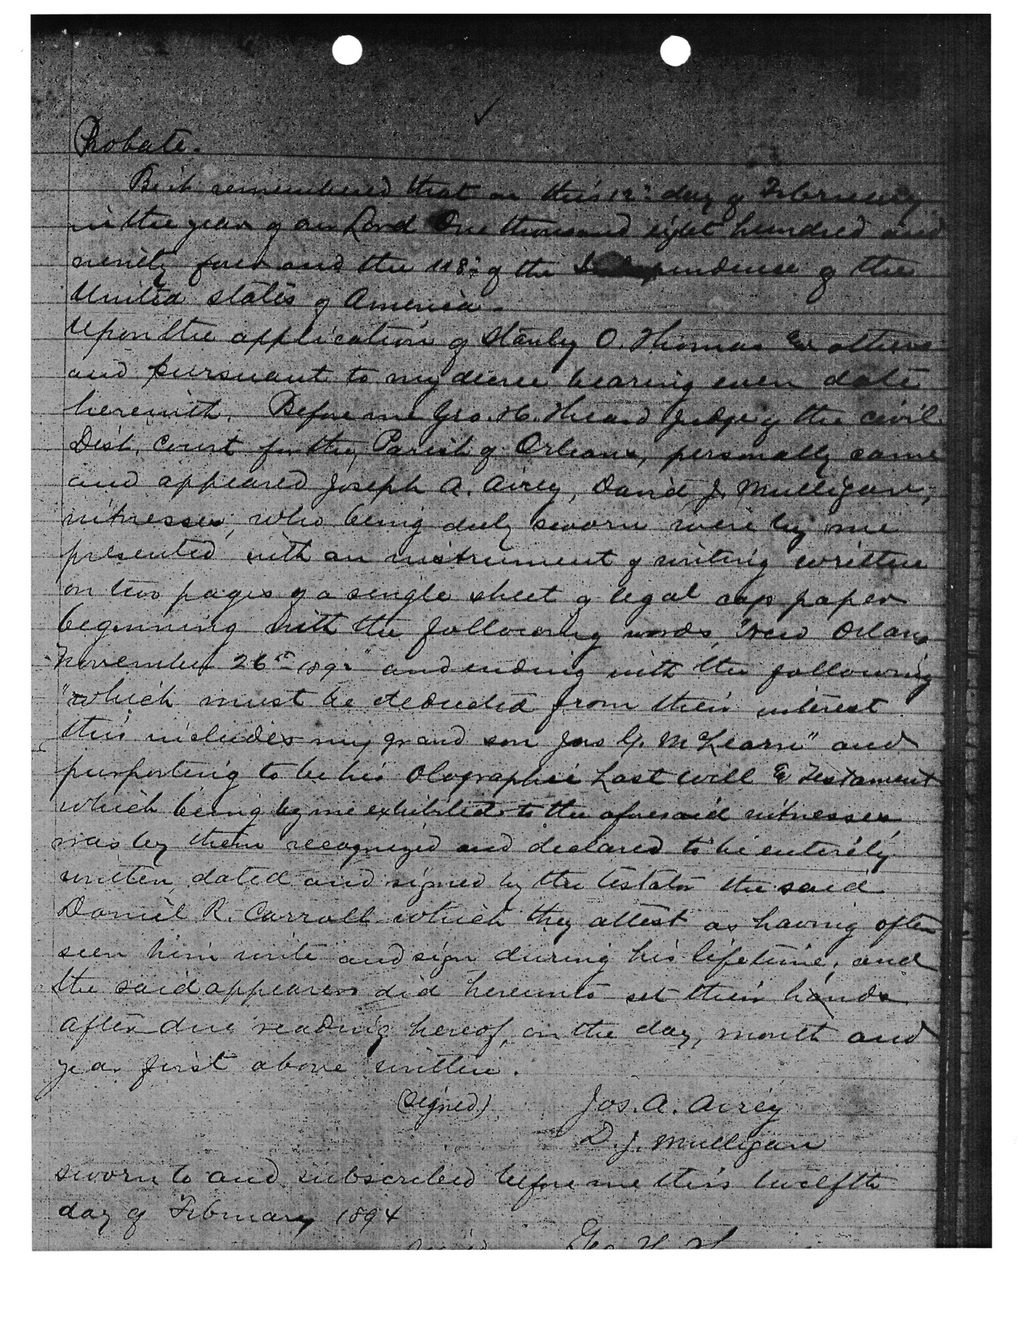 Probate.
Be it remembered that on this 12th day of February
in the year of our Lord One thousand eight hundred and
ninety four and the 118th of the Independence of the
United States of America.
Upon the application of Stanley O. Thomas Exr & others
and pursuant to my decree bearing even date
herewith. Before me Geo. H. Theard Judge of the civil
Dist. Court for the Parish of Orleans, personally came
and appeared Joseph A. Airey, David J. Mulligan,
witnesses, who being duly sworn were by me
presented with an instrument of writing written
on two pages of a single sheet of legal cap paper
beginning with the following words "New Orleans
November 26th 189" and ending with the following
"which must be deducted from their interest
this includes my grand son Jas G. McLearn" and
purporting to be his Olographic Last Will & Testament
which being by me exhibited to the aforesaid witnesses
was by them recognized and declared to be entirely
written, dated and signed by the testator the said
Daniel R. Carroll which they attest as having often
seen him write and sign during his lifetime; and
the said appearers did hereunto set their hands
after due reading hereof, on the day, month and
year first above written.
(Signed) Jos. A. Airey
D. J. Mulligan
sworn to and subscribed before me this twelfth
day of February 1894
Geo. H.